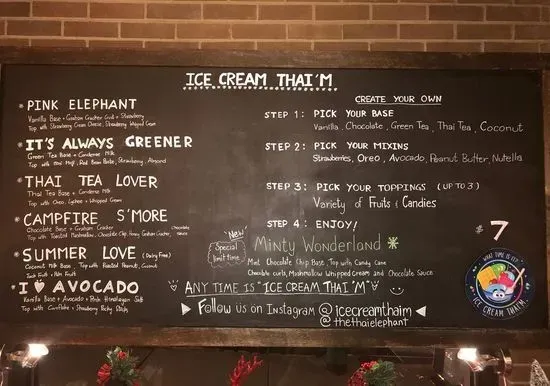 ICE CREAM THAI'M
* PINK ELEPHANT
Vanilla Base + Graham Cracker Crust + Strawberry
Top with Strawberry Cream Cheese, Strawberry Whipped Cream
* IT'S ALWAYS GREENER
Green Tea Base + Condense Milk
Top with Mochi, Red Bean Paste, Strawberry, Almond
* THAI TEA LOVER
Thai Tea Base + Condense Milk
Top with Oreo, Lychee + Whipped Cream
* CAMPFIRE S'MORE
Chocolate Base + Graham Cracker
Top with Toasted Marshmallow, Chocolate Chip, Honey Graham Cracker, Chocolate sauce
* SUMMER LOVE (Dairy Free)
Coconut Milk Base, Top with Roasted Peanut, Coconut
Jack Fruit + Palm Fruit
* I ♥ AVOCADO
Vanilla Base + Avocado + Pink Himalayan Salt
Top with Cornflake + Strawberry Pocky Sticks
CREATE YOUR OWN
STEP 1: PICK YOUR BASE
Vanilla, Chocolate, Green Tea, Thai Tea, Coconut
STEP 2: PICK YOUR MIXINS
Strawberries, Oreo, Avocado, Peanut Butter, Nutella
STEP 3: PICK YOUR TOPPINGS (UP TO 3)
Variety of Fruits & Candies
STEP 4: ENJOY!
New
Special limit time
Minty Wonderland
Mint Chocolate Chip Base, Top with Candy Cane
Chocolaty curls, Mashmallow Whipped Cream and Chocolate Sauce
$7
ANY TIME IS "ICE CREAM THAI'M"
Follow us on Instagram @icecreamthaim
@thethaielephant
WHAT TIME IS IT?
ICE CREAM THAIM